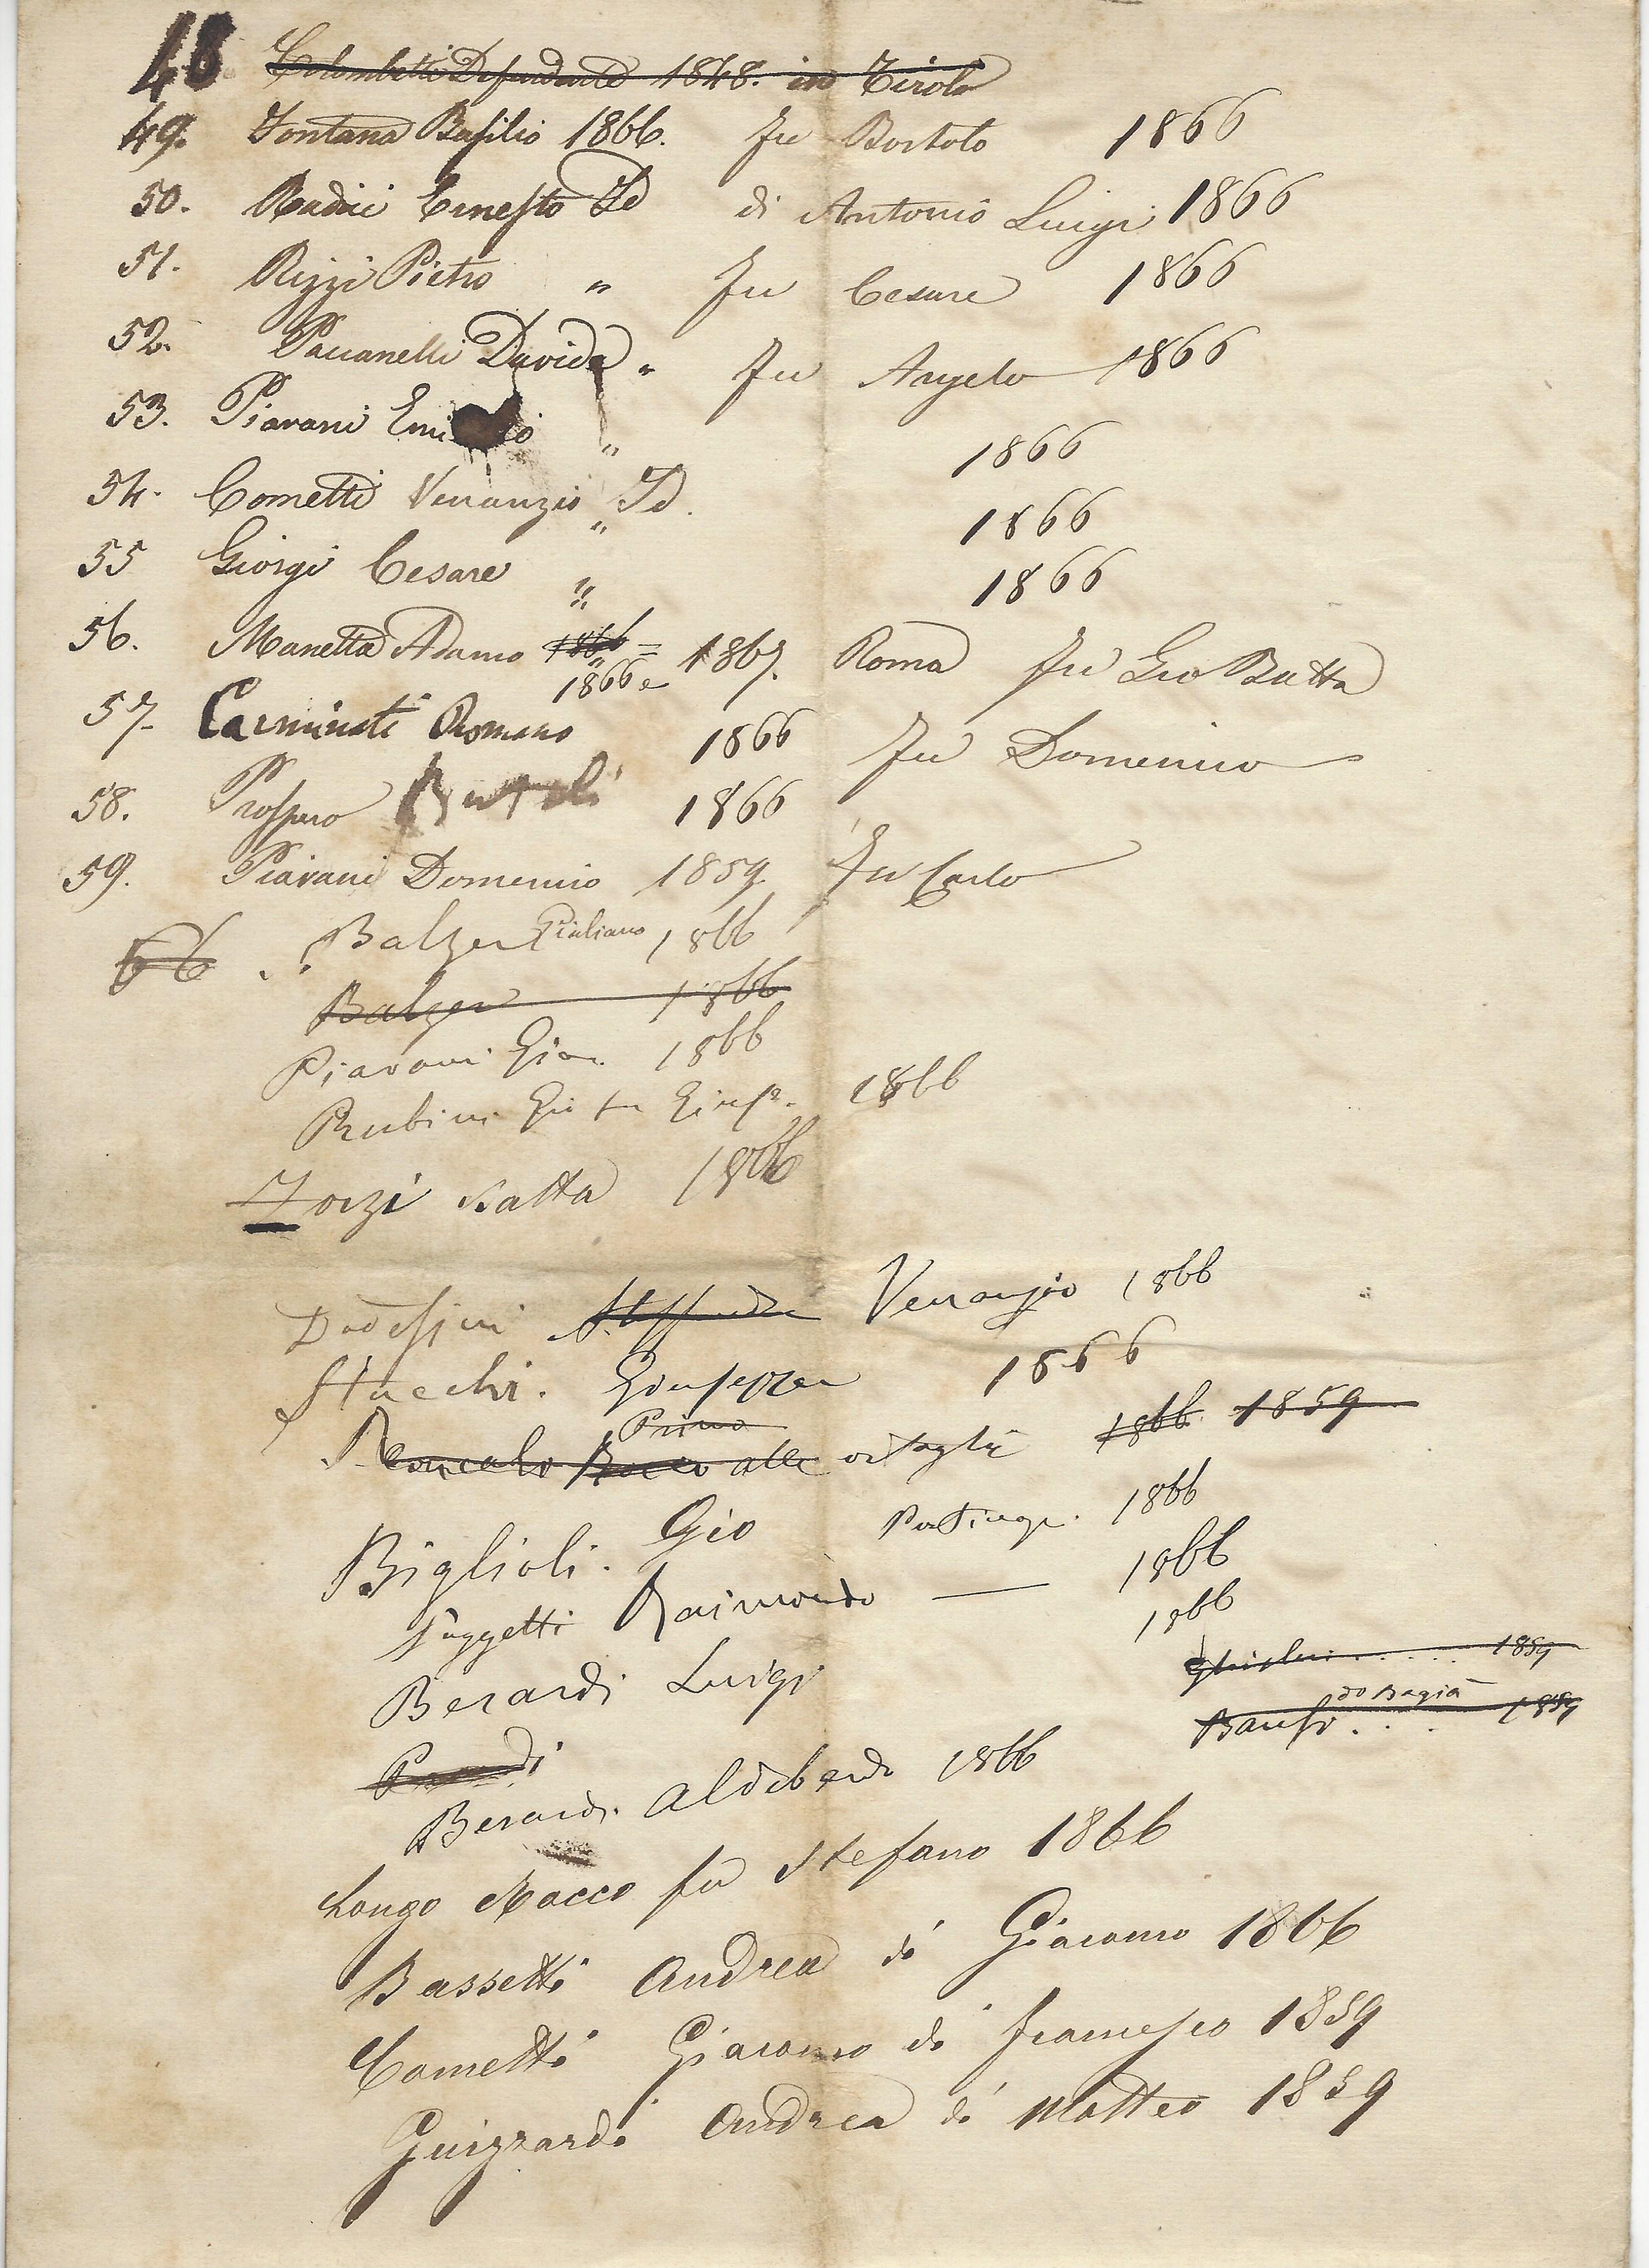 48 Colombetti Defendente 1848. in Tirolo
49. Fontana Basilio 1866. Fu Bortolo 1866
50. Radici Ernesto Id di Antonio Luigi 1866
51. Rizzi Pietro " Fu Cesare 1866
52. Paccanelli Davide " Fu Angelo 1866
53. Piavani Emilio " 1866
54. Cometti Venanzio " Id. 1866
55 Giorgi Cesare " 1866
56. Manetta Adamo 1866 = 1867. Roma Fu Gio Batta
1866 e
57. Carminati Romano 1866 Fu Domenico
58. Prospero 1866
59. Piavani Domenico 1859 Fu Carlo
66 Balzer Giuliano 1866
Balzer 1866
Piavani Gio. 1866
Rubini Gio fu Gius. 1866
Zorzi Batta 1866
Dodesini Venanzio 1866
Stucchi. Giuseppe 1866
Primo
Rocco alle 1866 1859
Biglioli. Gio 1866
Faggetti Raimondo — 1866
Berardi Luigi 1866
1859
Banfi . . . 1859
Berardi Aldebardo 1866
Longo Rocco fu Stefano 1866
Bassetti Andrea di Giacomo 1866
Cometti Giacomo di Francesco 1859
Guizzardi Andrea di Matteo 1859